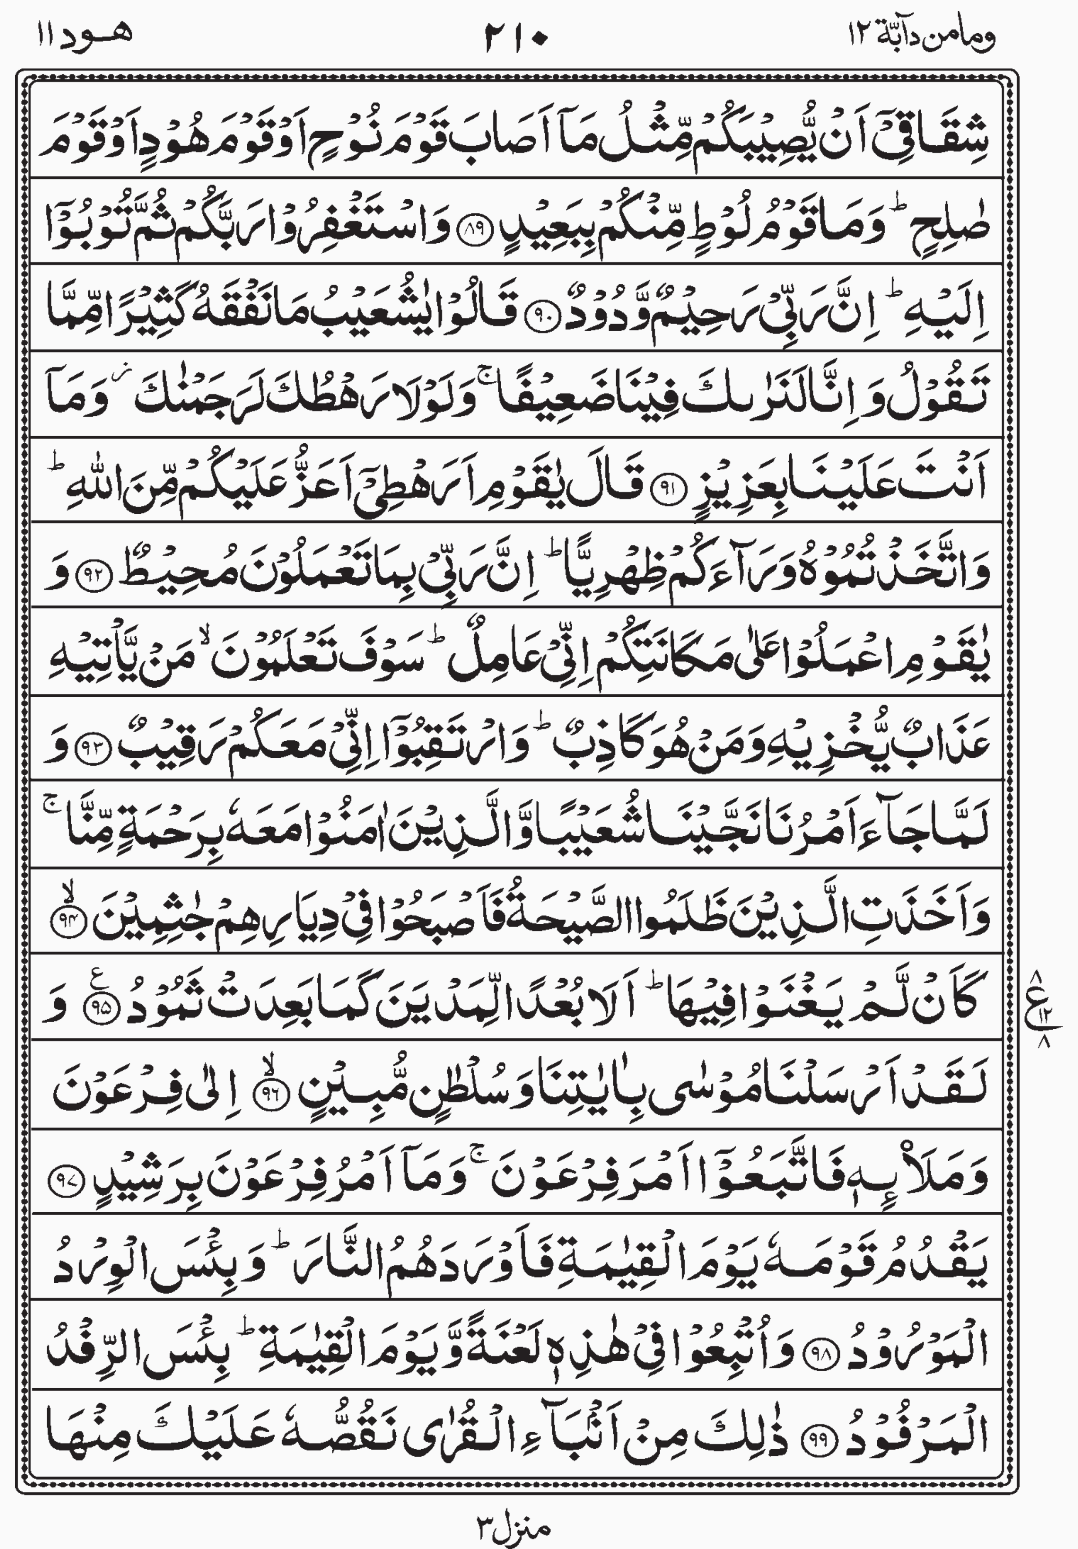 ومامن دآبّة ١٢
٢١٠
هود ١١
شِقَاقِيْۤ اَنْ يُّصِيْبَكُمْ مِّثْلُ مَاۤ اَصَابَ قَوْمَ نُوْحٍ اَوْ قَوْمَ هُوْدٍ اَوْ قَوْمَ
صٰلِحٍ ؕ وَ مَا قَوْمُ لُوْطٍ مِّنْكُمْ بِبَعِيْدٍ ﴿٨٩﴾ وَ اسْتَغْفِرُوْا رَبَّكُمْ ثُمَّ تُوْبُوْۤا
اِلَيْهِ ؕ اِنَّ رَبِّيْ رَحِيْمٌ وَّدُوْدٌ ﴿٩٠﴾ قَالُوْا يٰشُعَيْبُ مَا نَفْقَهُ كَثِيْرًا مِّمَّا
تَقُوْلُ وَ اِنَّا لَنَرٰىكَ فِيْنَا ضَعِيْفًا ۚ وَ لَوْ لَا رَهْطُكَ لَرَجَمْنٰكَ ؗ وَ مَاۤ
اَنْتَ عَلَيْنَا بِعَزِيْزٍ ﴿٩١﴾ قَالَ يٰقَوْمِ اَرَهْطِيْۤ اَعَزُّ عَلَيْكُمْ مِّنَ اللّٰهِ ؕ
وَ اتَّخَذْتُمُوْهُ وَرَآءَكُمْ ظِهْرِيًّا ؕ اِنَّ رَبِّيْ بِمَا تَعْمَلُوْنَ مُحِيْطٌ ﴿٩٢﴾ وَ
يٰقَوْمِ اعْمَلُوْا عَلٰى مَكَانَتِكُمْ اِنِّيْ عَامِلٌ ؕ سَوْفَ تَعْلَمُوْنَ ۙ مَنْ يَّاْتِيْهِ
عَذَابٌ يُّخْزِيْهِ وَ مَنْ هُوَ كَاذِبٌ ؕ وَ ارْتَقِبُوْۤا اِنِّيْ مَعَكُمْ رَقِيْبٌ ﴿٩٣﴾ وَ
لَمَّا جَآءَ اَمْرُنَا نَجَّيْنَا شُعَيْبًا وَّ الَّذِيْنَ اٰمَنُوْا مَعَهٗ بِرَحْمَةٍ مِّنَّا ۚ
وَ اَخَذَتِ الَّذِيْنَ ظَلَمُوا الصَّيْحَةُ فَاَصْبَحُوْا فِيْ دِيَارِهِمْ جٰثِمِيْنَ ۙ﴿٩٤﴾
كَاَنْ لَّمْ يَغْنَوْا فِيْهَا ؕ اَلَا بُعْدًا لِّمَدْيَنَ كَمَا بَعِدَتْ ثَمُوْدُ ﴿٩٥﴾ ع وَ
٨ ع ١٢ ٨
لَقَدْ اَرْسَلْنَا مُوْسٰى بِاٰيٰتِنَا وَ سُلْطٰنٍ مُّبِيْنٍ ۙ﴿٩٦﴾ اِلٰى فِرْعَوْنَ
وَ مَلَا۠ئِهٖ فَاتَّبَعُوْۤا اَمْرَ فِرْعَوْنَ ۚ وَ مَاۤ اَمْرُ فِرْعَوْنَ بِرَشِيْدٍ ﴿٩٧﴾
يَقْدُمُ قَوْمَهٗ يَوْمَ الْقِيٰمَةِ فَاَوْرَدَهُمُ النَّارَ ؕ وَ بِئْسَ الْوِرْدُ
الْمَوْرُوْدُ ﴿٩٨﴾ وَ اُتْبِعُوْا فِيْ هٰذِهٖ لَعْنَةً وَّ يَوْمَ الْقِيٰمَةِ ؕ بِئْسَ الرِّفْدُ
الْمَرْفُوْدُ ﴿٩٩﴾ ذٰلِكَ مِنْ اَنْۢبَآءِ الْقُرٰى نَقُصُّهٗ عَلَيْكَ مِنْهَا
منزل ٣